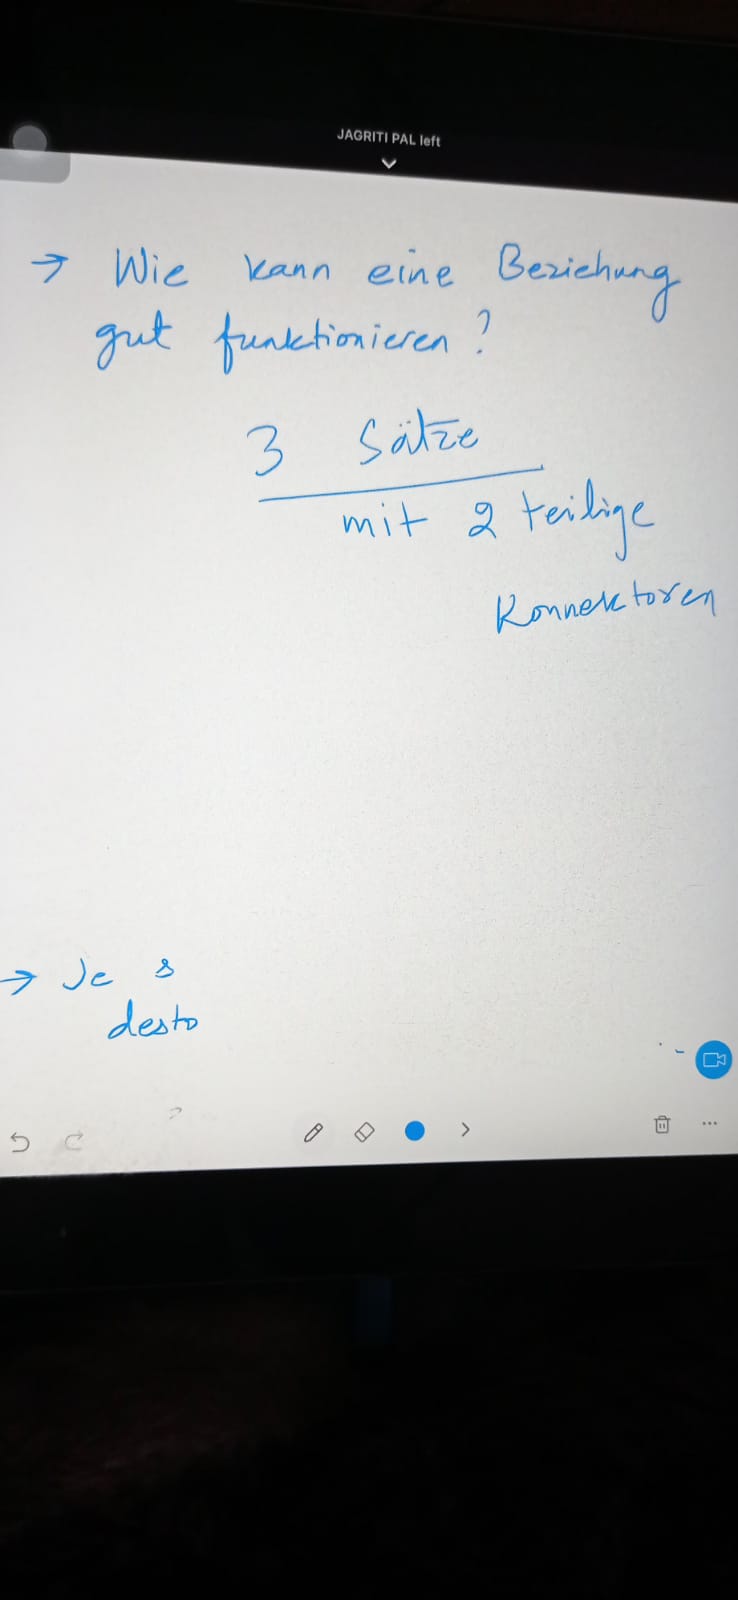 JAGRITI PAL left
→ Wie kann eine Beziehung
gut funktionieren?
3 Sätze
mit 2 teilige
Konnektoren
→ Je
desto